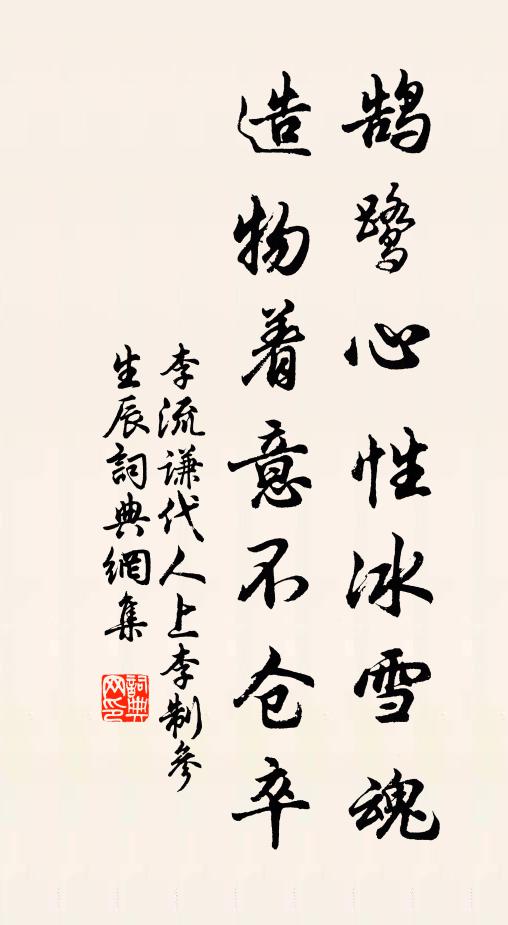 鹄鹭心性冰雪魂
造物着意不仓卒
李流谦代人上李制參
生辰詞典網集
詞典网印